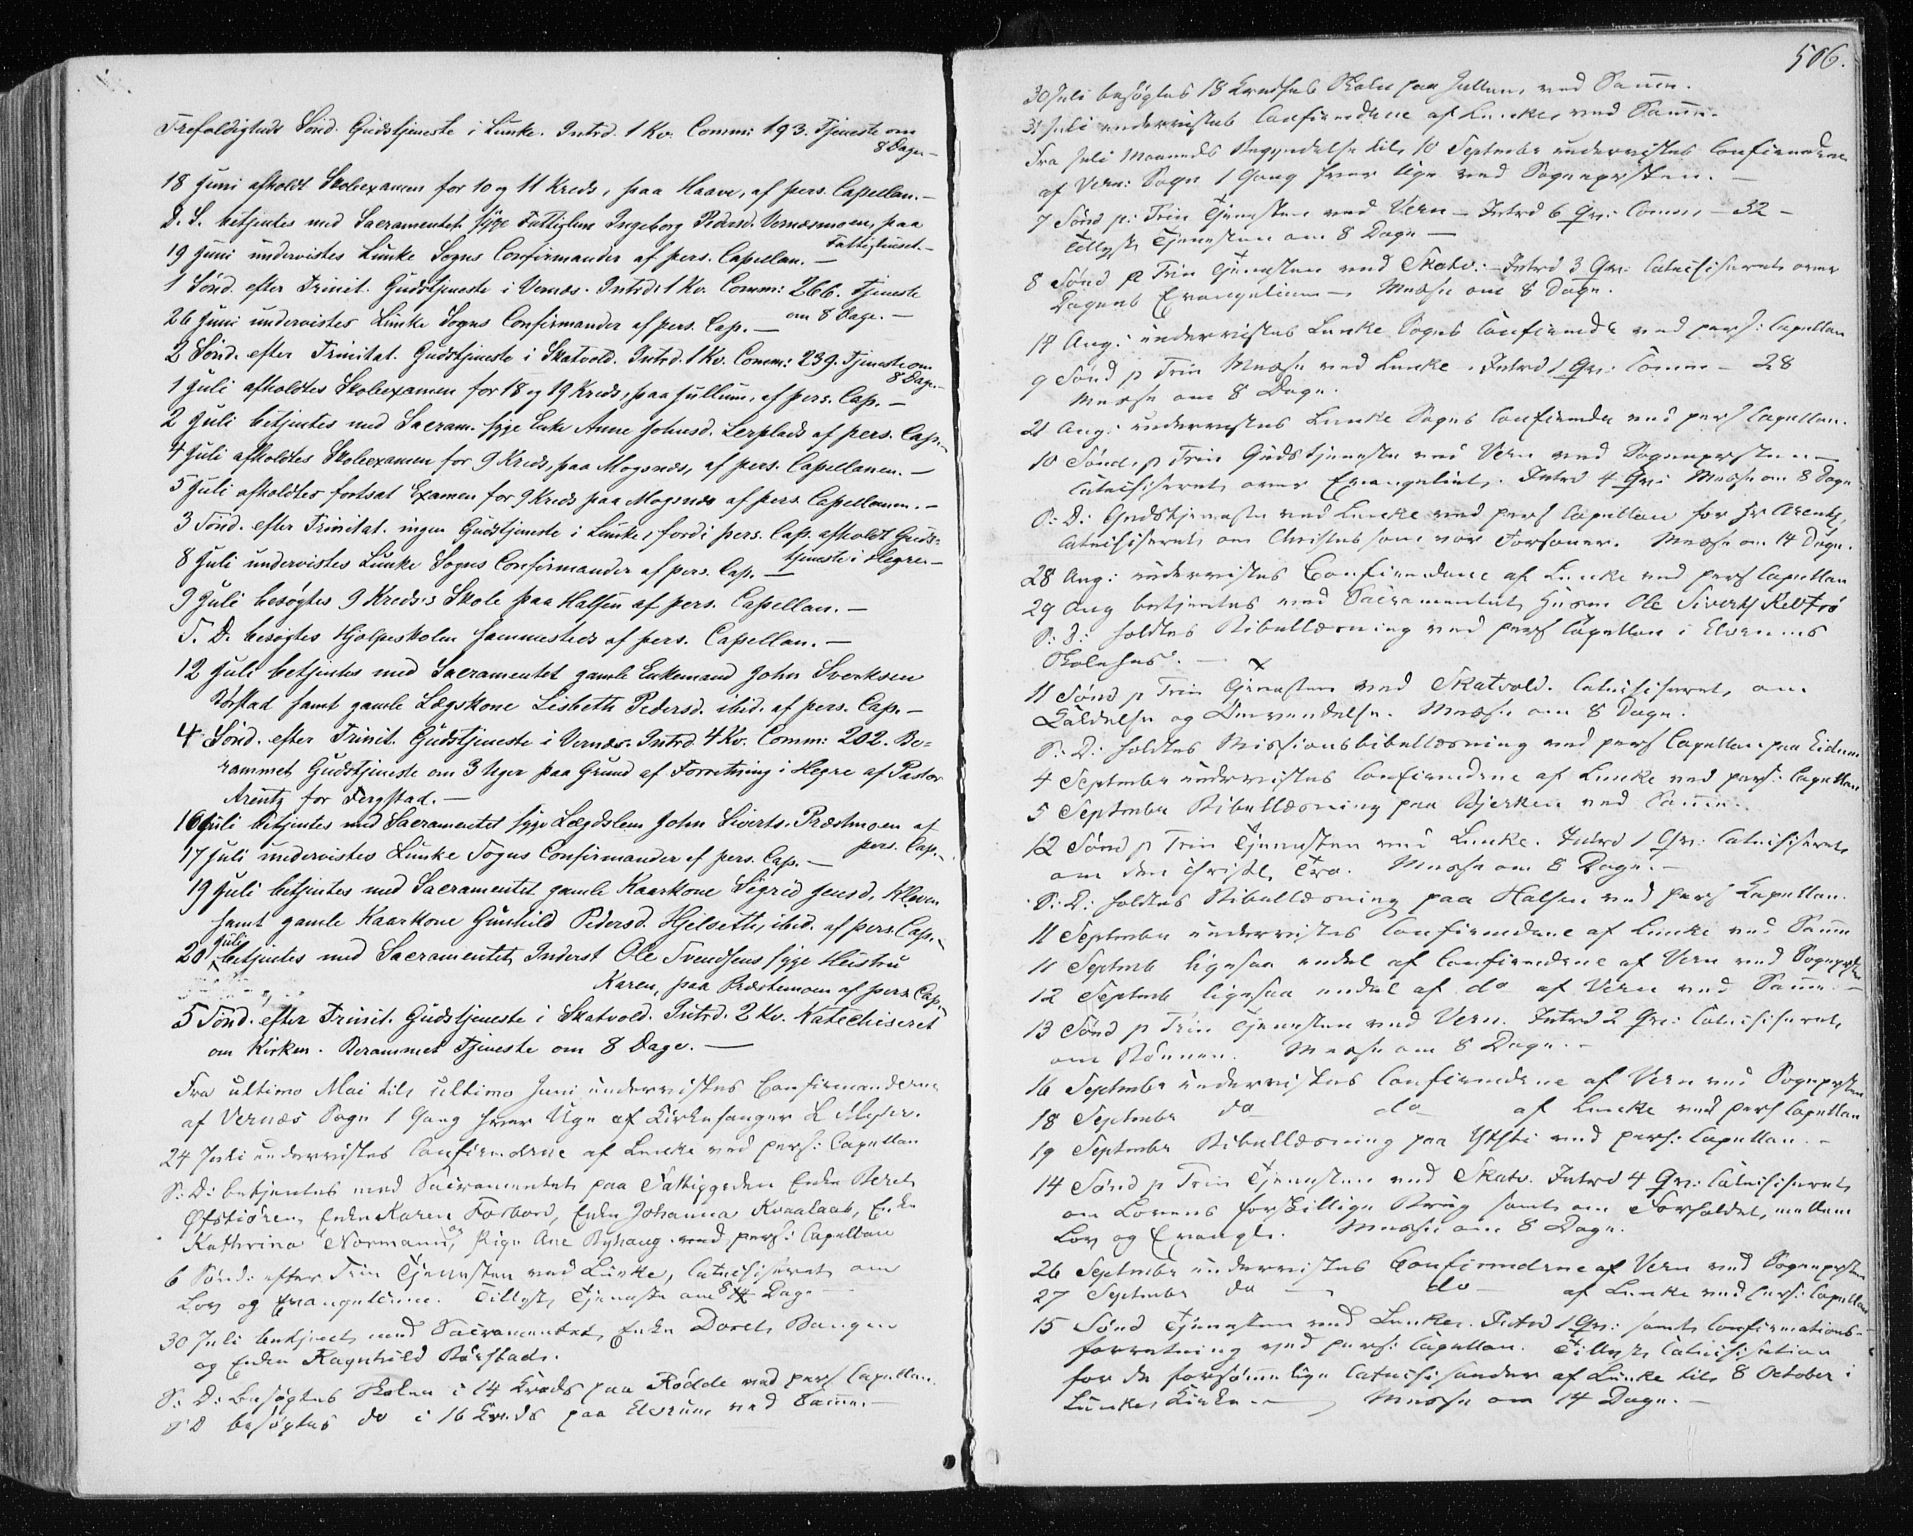 Trefoldigheds Sönd. Gudstjeneste i Lunke. Intrd. 1 Kv. Comm: 193. Tjeneste om
8 Dage. —
18 Juni afholdt Skoleexamen for 10 og 11 Kreds, paa Haave, af pers. Capellan. —
D. S. betjentes med Sacramentet syge Fattiglem Ingeborg Pedersd. Vernesmoen, paa
Fattighuset. —
19 Juni undervistes Lunke Sogns Confirmander af pers. Capellan. —
1 Sönd. efter Trinit. Gudstjeneste i Vernæs. Intrd: 1 Kv. Comm: 266. Tjeneste
om 8 Dage. —
26 Juni undervistes Lunke Sogns Confirmander af pers. Cap. —
2 Sönd. efter Trinitat. Gudstjeneste i Skatvold. Intrd. 1 Kv. Comm: 239. Tjeneste om
8 Dage. —
1 Juli afholdtes Skoleexamen for 18 og 19 Kreds, paa Jullum, af pers. Cap. —
2 Juli betjentes med Sacram. syge Enke Anne Johnsd. Lerplads af pers. Cap. —
4 Juli afholdtes Skoleexamen for 9 Kreds, paa Mogsnæs, af pers. Capellanen. —
5 Juli afholdtes fortsat Examen for 9 Kreds paa Mogsnæs af pers. Capellanen. —
3 Sönd. efter Trinitat. ingen Gudstjeneste i Lunke, fordi pers. Cap. afholdt Guds-
tjeneste i Hegre. —
8 Juli undervistes Lunke Sogns Confirmander af pers. Cap. —
9 Juli besøgtes 9 Kreds's Skole paa Halsen af pers. Capellan. —
S. D. besøgtes Hjelpeskolen sammesteds af pers. Capellan. —
12 Juli betjentes med Sacramentet gamle Enkemand John Sverksen
Vorstad samt gamle Lægskone Lisbeth Pedersd. ibid. af pers. Cap. —
4 Sönd. efter Trinit. Gudstjeneste i Vernæs. Intrd. 4 Kv. Comm: 202. Be-
rammet Gudstjeneste om 3 Uger paa Grund af Forretning i Hegre af Pastor
Arentz for Bergstad. —
16 Juli betjentes med Sacramentet syge Lægdslem John Siverts. Præstmoen af
pers. Cap. —
17 Juli undervistes Lunke Sogns Confirmander af pers. Cap. —
19 Juli betjentes med Sacramentet gamle Kaarkone Sigrid Jensd. Kleven
samt gamle Kaarkone Gunhild Pedersd. Hjelseth, ibid. af pers. Cap. —
20 Juli betjentes med Sacramentet Inderst Ole Svendsens syge Hustru
Karen, paa Præstemoen af pers. Cap. —
5 Sönd. efter Trinit. Gudstjeneste i Skatvold. Intrd. 2 Kv. Katechiseret
om Kirken. Berammet Tjeneste om 8 Dage. —
Fra ultimo Mai til ultimo Juni undervistes Confirmanderne
af Vernæs Sogn 1 Gang hver Uge af Kirkesanger L Meyer.
24 Juli undervistes Confirmderne af Lunke ved pers: Capellan
S: D: betjentes med Sacramentet paa Fattiggden Enke Beret
Øfstiören, Enke Karen Forbord, Enke Johanna Kvaalaab, Enke
Kathrina Normann, og Pige Ane Byhaug ved pers: Capellan
6 Sönd: efter Trin Tjenesten ved Lunke, Catechiseret om
Lov og Evangelium. Tillyst Tjeneste om 8 Dage
30 Juli betjent med Sacramentet Enke Doret Bangen
og Enken Ragnhild Börstad.
S: D: Besøgtes Skolen i 14 Kreds paa Rödde ved pers Capellan.
S D besøgtes do i 16 Kreds paa Elvrum ved Samme. —
506.
30 Juli besøgtes 18 Kredses Skole paa Jullum, ved Samm.
31 Juli undervistes Confirmdene af Lunke, ved Samme.
Fra Juli Maaneds Begyndelse til 10 September undervistes Confirmdene
af Vern: Sogn 1 Gang hver Uge ved Sognepresten. —
7 Sönd p: Trin Tjenesten ved Vern — Intrd 6 Qv: Comm — 32 —
Tillyst Tjenesten om 8 Dage —
8 Sönd p Trin Tjenesten ved Skatv: — Intrd 3 Qv: Catechiseret over
Dagens Evangelium — Messe om 8 Dage.
14 Aug: undervistes Lunke Sogns Confirmde ved pers: Capellan
9 Sönd p Trin Messe ved Lunke. Intrd 1 Qv: Comm — 28
Messe om 8 Dage.
21 Aug: undervistes Lunke Sogns Confirmder ved pers Capellan.
10 Sönd. p Trin Gudstjeneste ved Vern ved Sognepresten —
Catechiseret over Evangeliet. Intrd 4 Qv: Messe om 8 Dage
S: D: Gudstjeneste ved Lunke ved pers Capellan for Hr Arentz,
Catechiseret om Christus som vor Forsoner. Messe om 14 Dage.
28 Aug: undervistes Confirmdene af Lunke ved pers Capellan
29 Aug betjentes med Sacramentet Husm Ole Siverts Reitrö
S: D: holdtes Bibellæsning ved pers Capellan i Elvrums
Skolehus. —
11 Sönd p Trin Tjenesten ved Skatvold. Catechiseret om
Kaldelse og Omvendelse. Messe om 8 Dage.
S: D: holdtes Missionsbibellæsning ved pers Capellan paa Eidum
4 September undervistes Confirmdene af Lunke ved pers: Capellan
5 September Bibellæsning paa Bjerken ved Samme.
12 Sönd p Trin Tjenesten ved Lunke. Intrd 1 Qv: Catechiseret
om den christl. Tro. Messe om 8 Dage. —
S: D: holdtes Bibellæsning paa Halsen ved pers Capellan.
11 September undervistes Confirmdene af Lunke ved Samm
11 Septemb ligesaa endel af Confirmdene af Vern ved Sogneprsten
12 Septemb ligesaa endel af do af Vern ved Samme. —
13 Sönd p Trin Tjenesten ved Vern. Intrd 2 Qv: Catechiseret
om Bönnen. Messe om 8 Dage. —
16 September undervistes Confirmdene af Vern ved Sogneprsten
18 September do do af Lunke ved pers Capellan
19 September Bibellæsning paa Ystti ved pers: Capellan. —
14 Sönd p Trin Tjenesten ved Skatv. Intrd 4 Qv: Catechiseret
om Lovens forskillige Brug samt om Forholdet mellem
Lov og Evangl. Messe om 8 Dage.
26 September undervistes Confirmdene af Vern ved Sogneprsten
27 September do — do — af Lunke ved pers: Capellan
15 Sönd Tjenesten ved Lunke. Intrd 1 Qv: samt Confirmations-
forretning ved pers: Capellan. Tillyst Catechisation
for de forsömmelige Catechisander af Lunke til 8 October i
Lunke Kirke. — Messe om 14 Dage. —